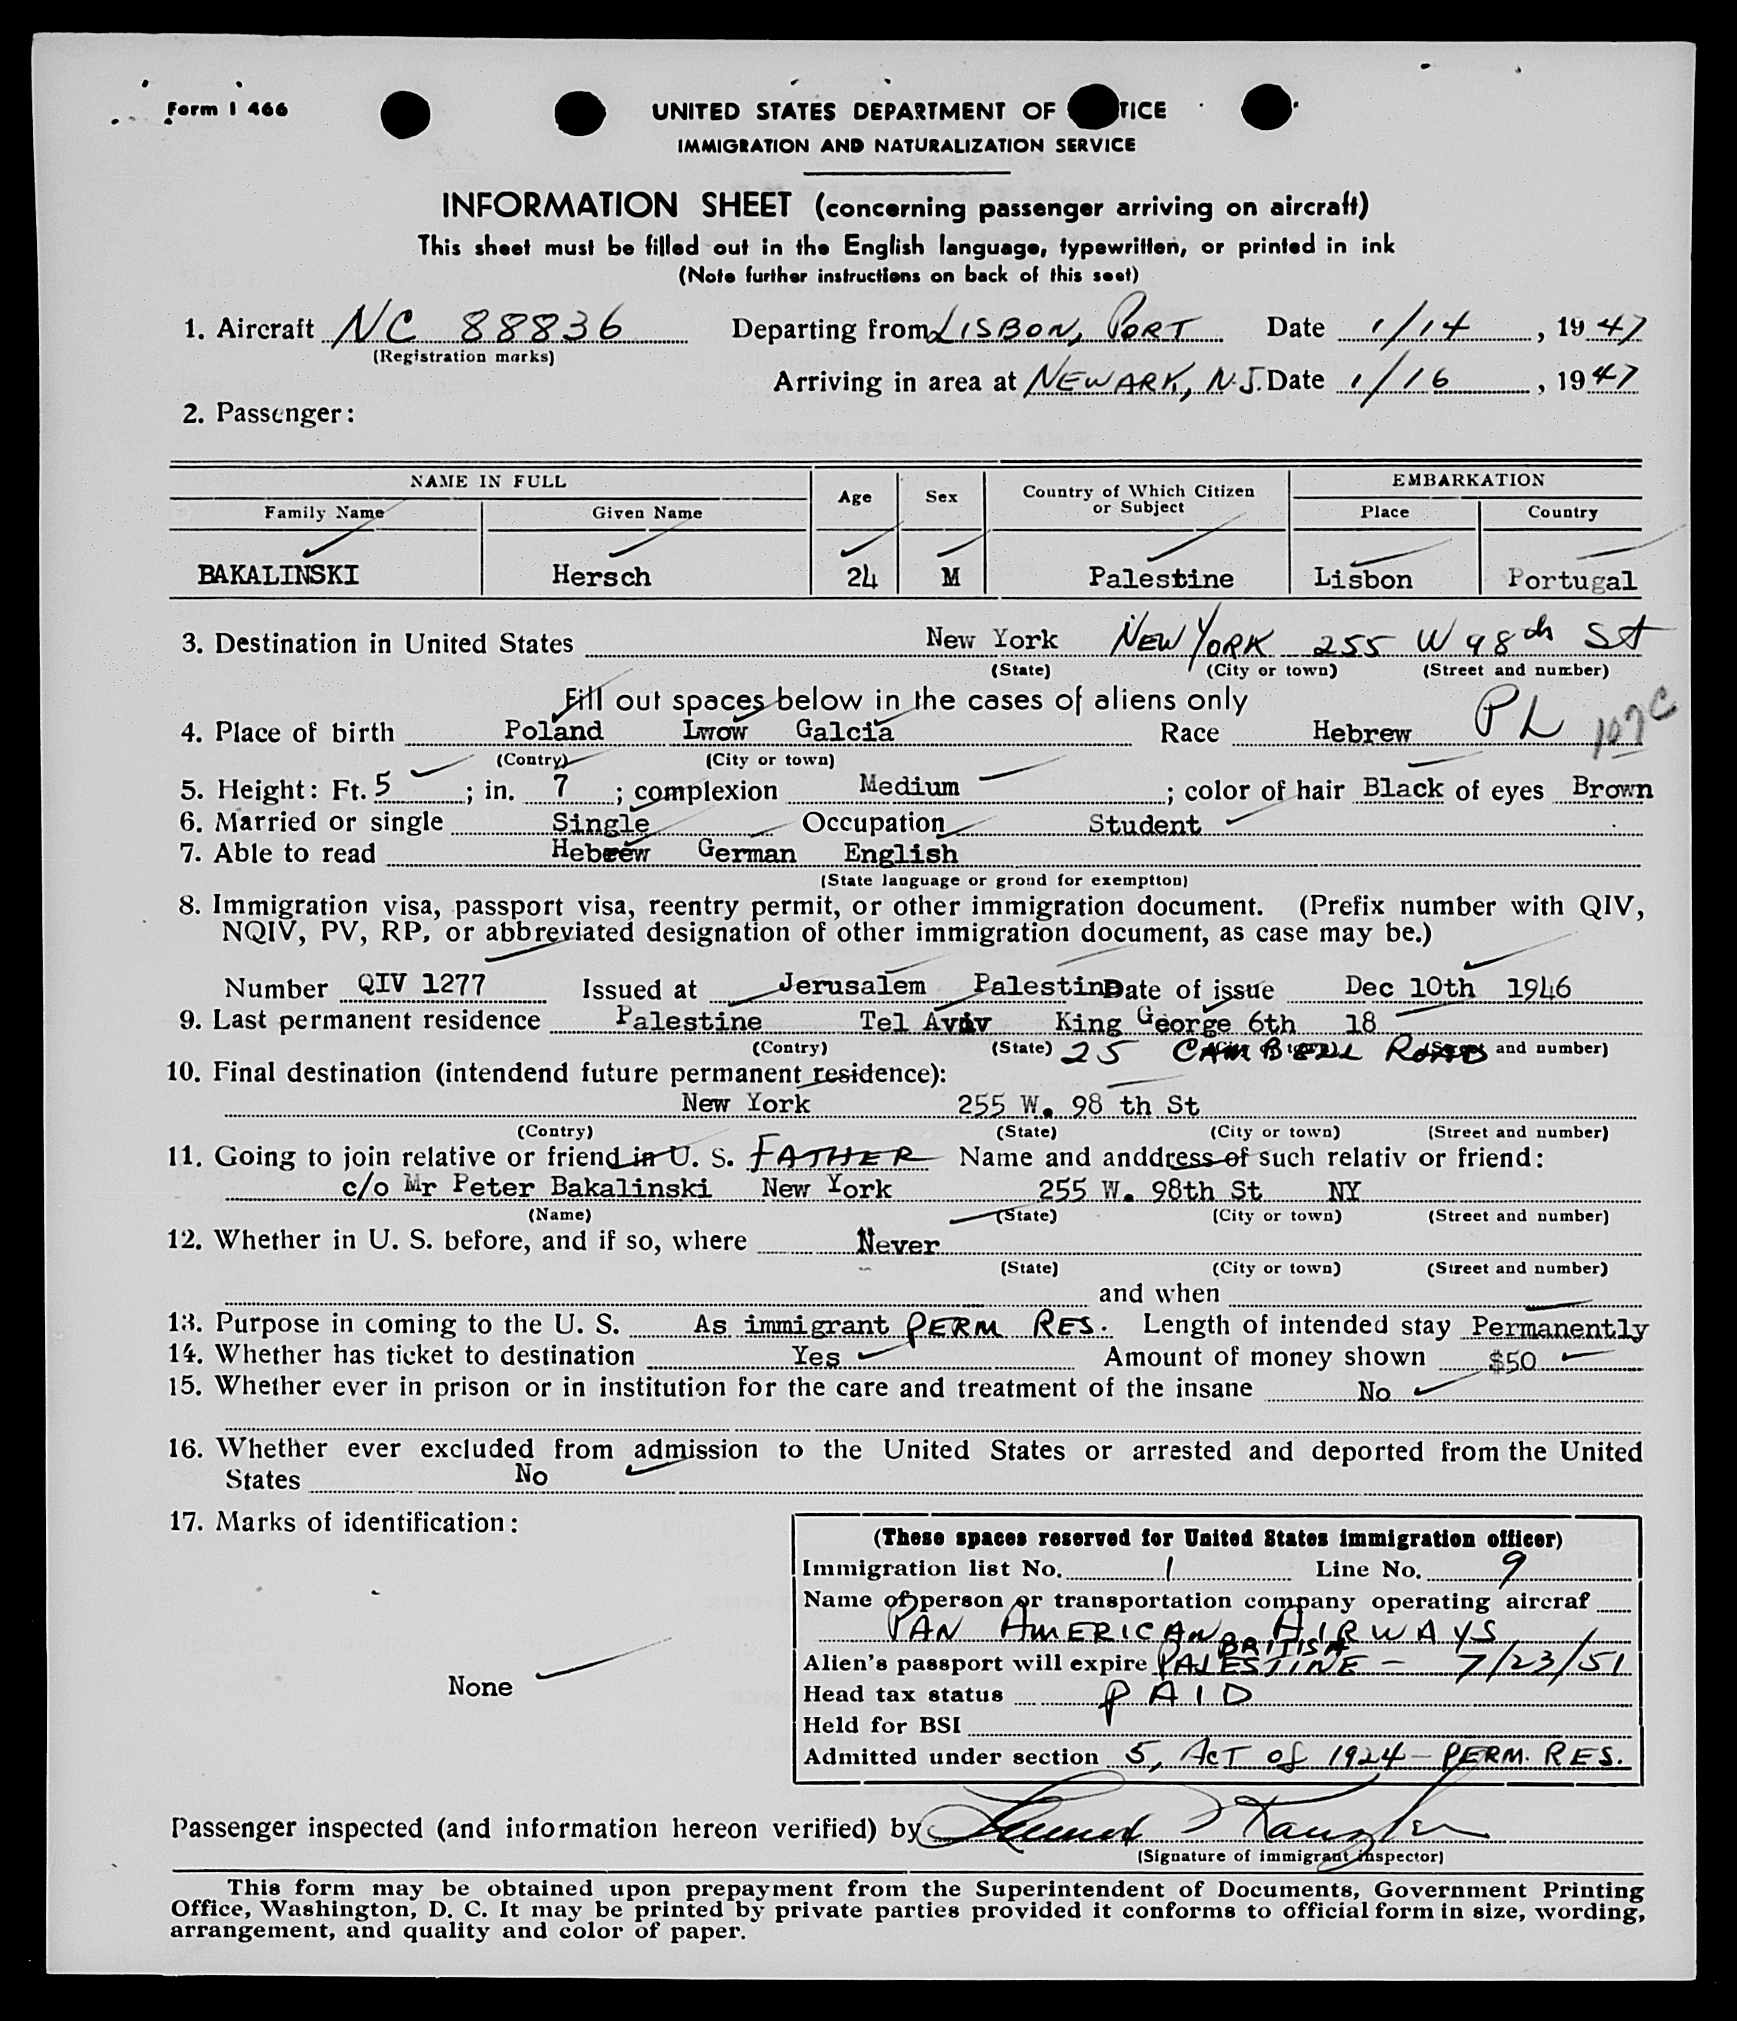 Form I 466
UNITED STATES DEPARTMENT OF TICE
IMMIGRATION AND NATURALIZATION SERVICE
INFORMATION SHEET (concerning passenger arriving on aircraft)
This sheet must be filled out in the English language, typewritten, or printed in ink
(Note further instructions on back of this seet)
1. Aircraft NC 88836 Departing from LISBON, PORT Date 1/14, 1947
(Registration marks)
Arriving in area at NEWARK, N.J. Date 1/16, 1947
2. Passenger:
NAME IN FULL Age Sex Country of Which Citizen or Subject EMBARKATION
Family Name Given Name Place Country
BAKALINSKI Hersch 24 M Palestine Lisbon Portugal
3. Destination in United States New York NEW YORK 255 W 98th St
(State) (City or town) (Street and number)
Fill out spaces below in the cases of aliens only
4. Place of birth Poland Lwow Galcia Race Hebrew PL 107c
(Contry) (City or town)
5. Height: Ft. 5; in. 7; complexion Medium; color of hair Black of eyes Brown
6. Married or single Single Occupation Student
7. Able to read Hebrew German English
(State language or groud for exemption)
8. Immigration visa, passport visa, reentry permit, or other immigration document. (Prefix number with QIV,
NQIV, PV, RP, or abbreviated designation of other immigration document, as case may be.)
Number QIV 1277 Issued at Jerusalem Palestine Date of issue Dec 10th 1946
9. Last permanent residence Palestine Tel Aviv King George 6th 18
(Contry) (State) 25 CAMBELL ROAD (Street and number)
10. Final destination (intendend future permanent residence):
New York 255 W. 98 th St
(Contry) (State) (City or town) (Street and number)
11. Going to join relative or friend in U. S. FATHER Name and anddress of such relativ or friend:
c/o Mr Peter Bakalinski New York 255 W. 98th St NY
(Name) (State) (City or town) (Street and number)
12. Whether in U. S. before, and if so, where Never
(State) (City or town) (Street and number)
and when
13. Purpose in coming to the U. S. As immigrant PERM RES. Length of intended stay Permanently
14. Whether has ticket to destination Yes Amount of money shown $50
15. Whether ever in prison or in institution for the care and treatment of the insane No
16. Whether ever excluded from admission to the United States or arrested and deported from the United
States No
17. Marks of identification:
None
(These spaces reserved for United States immigration officer)
Immigration list No. 1 Line No. 9
Name of person or transportation company operating aircraf
PAN AMERICAN AIRWAYS
BRITISH
Alien's passport will expire PALESTINE - 7/23/51
Head tax status PAID
Held for BSI
Admitted under section 5, ACT of 1924 - PERM. RES.
Passenger inspected (and information hereon verified) by
(Signature of immigrant inspector)
This form may be obtained upon prepayment from the Superintendent of Documents, Government Printing
Office, Washington, D. C. It may be printed by private parties provided it conforms to official form in size, wording,
arrangement, and quality and color of paper.